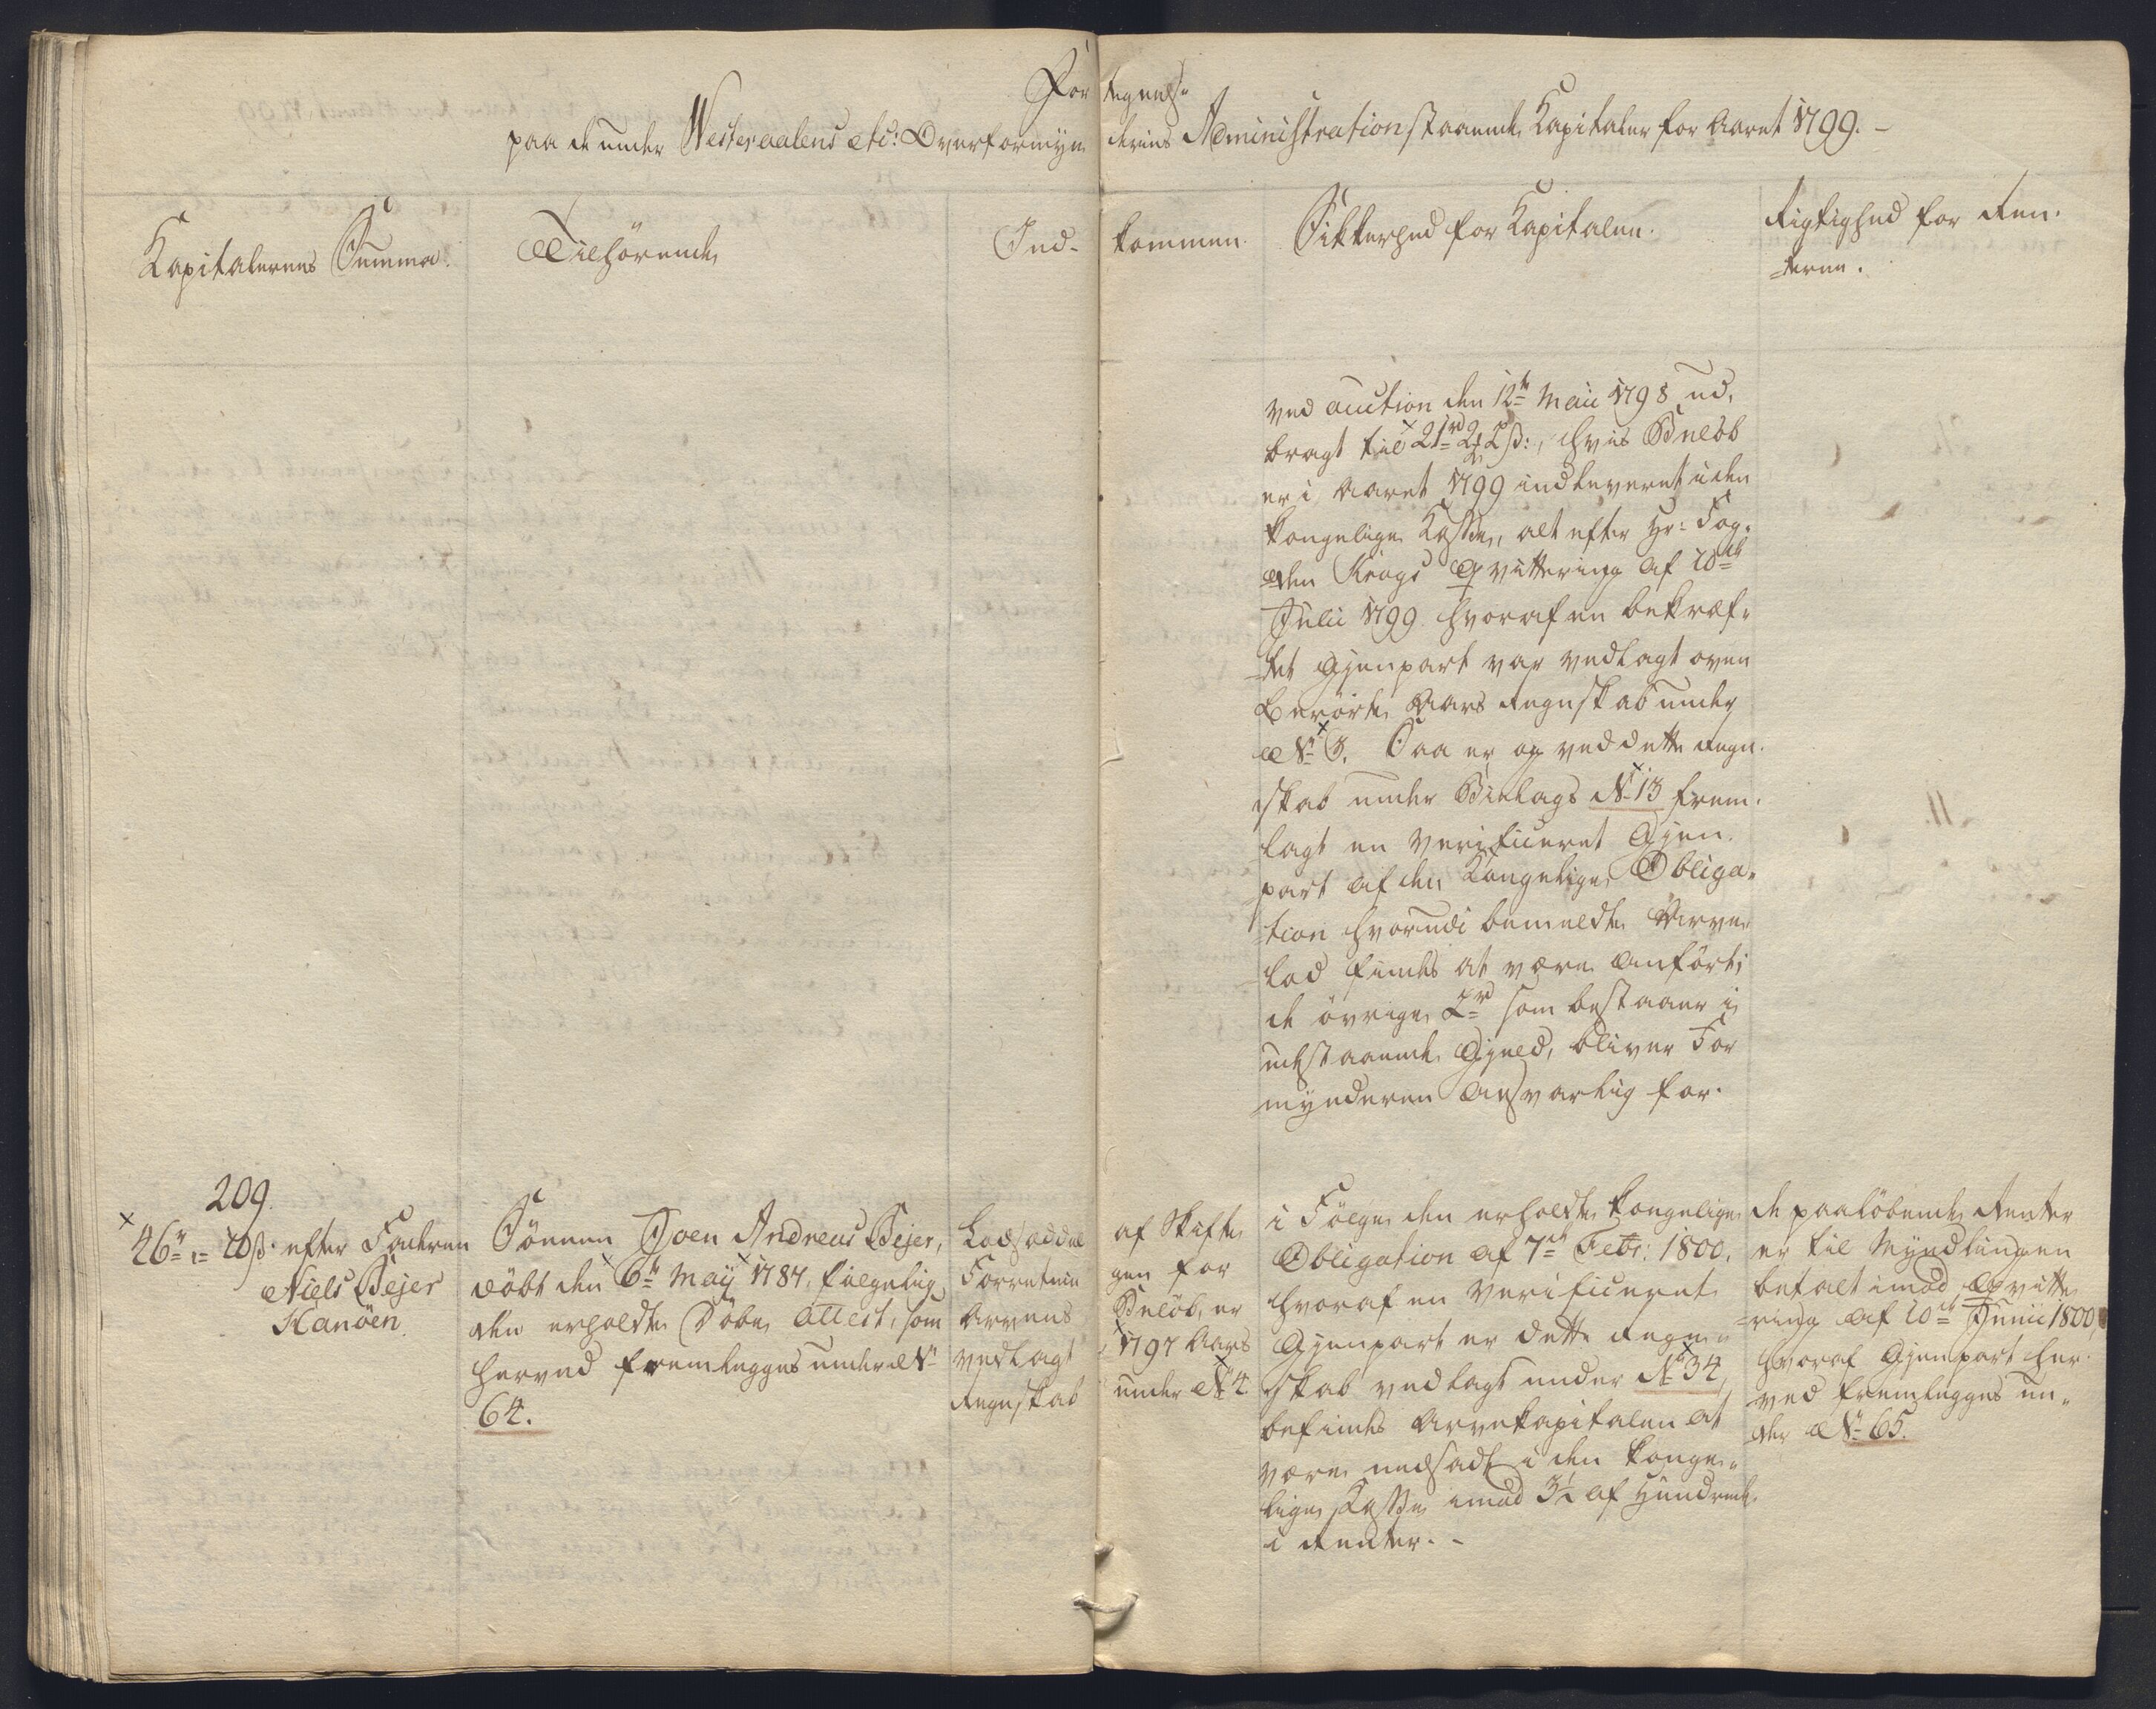 For tegnelse
paa de under Westeraalens etc: Overformyn deries Administration staaende Kapitaler for Aaret 1799. -
Kapitalernes Summa.
Tilhørende
Ind- kommen.
Sikkerhed for Kapitalen.
Rigtighed for Ren-
-terne.
ved auction den 12te Maii 1798 ud,
bragt til 21rd 2 2ß:, hvis Beløb
er i Aaret 1799 indleveret i den
kongelige Kasse, alt efter Hr: Fog-
-den Krogs Qvittering af 10de
Julii 1799 hvoraf en bekræf-
-tet Gjenpart var vedlagt oven
Berørte Aars Regnskab under
No 3. Saa er og ved dette Regn-
-skab under Bielags No 13 frem-
lagt en verificeret Gjen-
part af den Kongelige Obliga-
-tion hvorudi bemeldte Arve
lod findes at være anført;
de øvrige 2rd som bestaaer i
udestaaende Gjeld, bliver For
mynderen ansvarlig for.
209.
46r " 10ß. efter Faderen
Niels Bejer
Hanøen.
Sønnen Joen Andreas Bejer,
døbt den 6te May 1787, følgelig
den erholdte Døbe Attest, som
herved fremlegges under No
64.
Lodsæddel
Forretnin
Arvens
vedlagt
Regnskab
af Skifte
gen for
Beløb, er
1797 Aars
under No 4
i Følge den erholdte kongelige
Obligation af 7de Febr: 1800,
hvoraf en verificeret
Gjenpart er dette Regn-
-skab vedlagt under No 34,
befindes Arvekapitalen at
være nedsadt i den konge-
lige Kasse imod 3½ af Hundrede
i Renter. -
de paaløbende Renter
er til Myndlingen
betalt imod Qvitte
-ring af 10de Junii 1800,
hvoraf Gjenpart her-
ved fremlegges un-
der No 65.